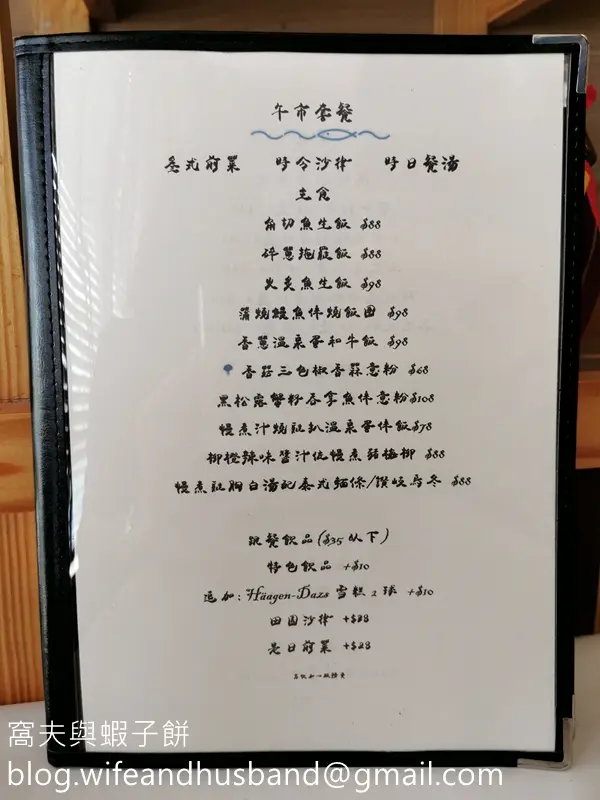 午市套餐
泰式前菜 時令沙律 時日餐湯
主食
角切魚生飯 $88
碎蔥拖羅飯 $88
火炙魚生飯 $98
蒲燒鰻魚伴燒飯團 $98
香蔥溫泉蛋和牛飯 $98
香菇三色椒香蒜意粉 $68
黑松露蟹籽吞拿魚伴意粉$108
慢煮汁燒豚扒溫泉蛋伴飯$78
柳橙辣味醬汁伴慢煮豬梅柳 $88
慢煮豚胸白湯配泰式麵條/讚岐烏冬 $88
跟餐飲品($35以下)
特色飲品 +$10
追加: Häagen-Dazs 雪糕 2 球 +$10
田園沙律 +$38
是日前菜 +$28
另收加一服務費
窩夫與蝦子餅
blog.wifeandhusband@gmail.com